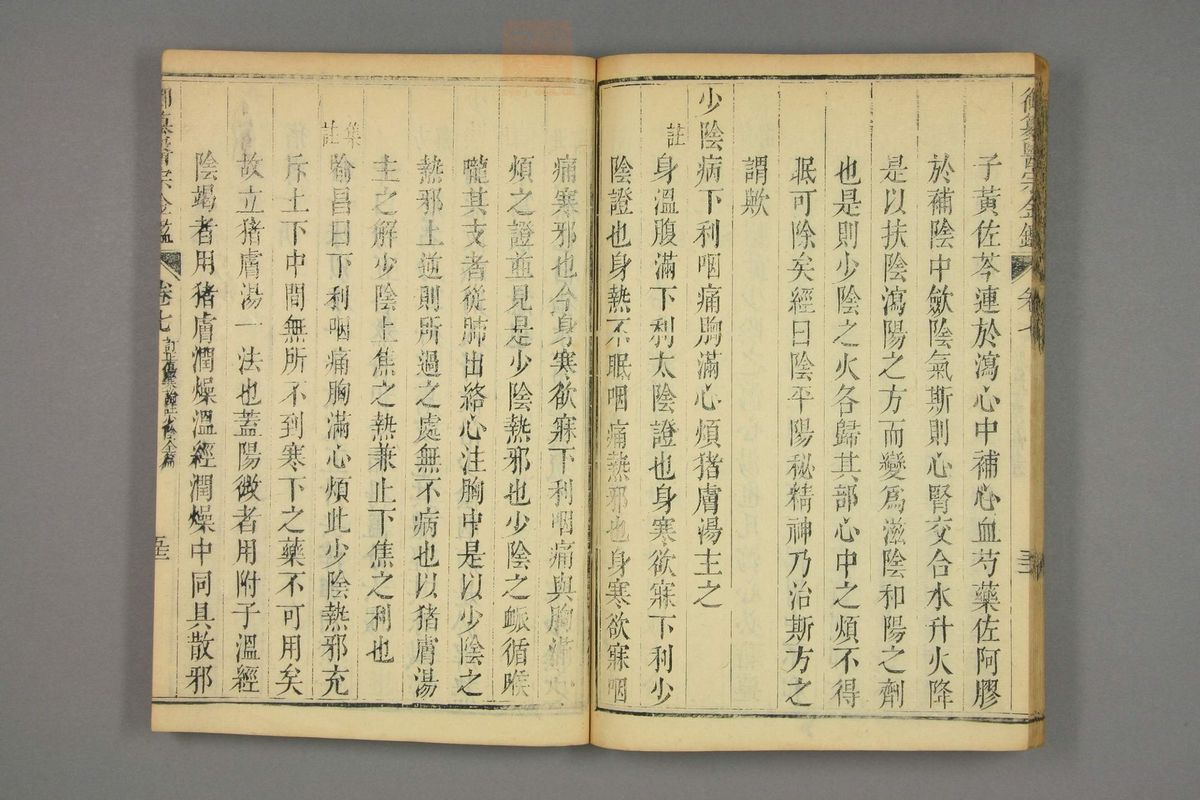 御纂醫宗金鑑 卷七
子黃佐芩連於瀉心中補心血芍藥佐阿膠
於補陰中斂陰氣斯則心腎交合水升火降
是以扶陰瀉陽之方而變爲滋陰和陽之劑
也是則少陰之火各歸其部心中之煩不得
眠可除矣經曰陰平陽秘精神乃治斯方之
謂歟
少陰病下利咽痛胸滿心煩猪膚湯主之
註 身溫腹滿下利太陰證也身寒欲寐下利少
陰證也身熱不眠咽痛熱邪也身寒欲寐咽
痛寒邪也今身寒欲寐下利咽痛與胸滿心
煩之證並見是少陰熱邪也少陰之脈循喉
嚨其支者從肺出絡心注胸中是以少陰之
熱邪上逆則所過之處無不病也以猪膚湯
主之解少陰上焦之熱兼止下焦之利也
集註 喻昌曰下利咽痛胸滿心煩此少陰熱邪充
斥上下中間無所不到寒下之藥不可用矣
故立猪膚湯一法也蓋陽微者用附子溫經
陰竭者用猪膚潤燥溫經潤燥中同具散邪
御纂醫宗金鑑 卷七